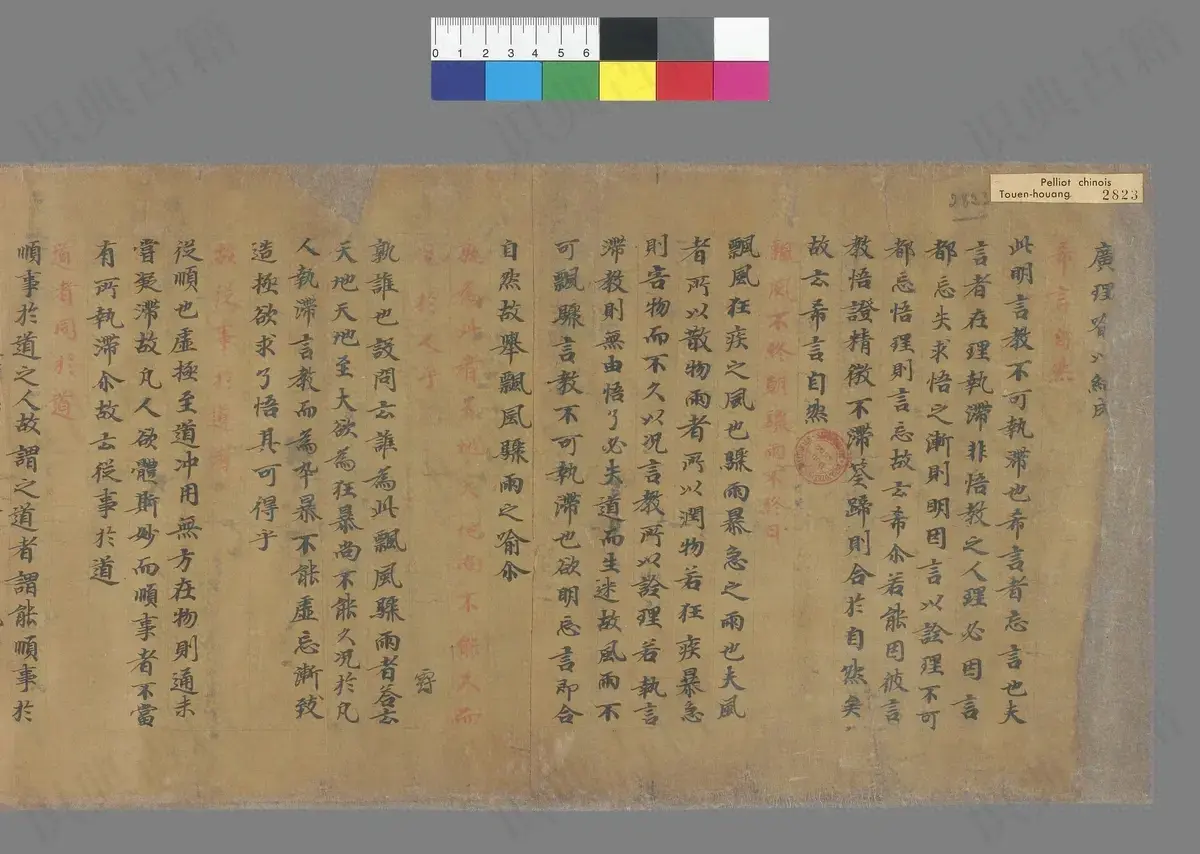 廣理皆以

希言自然
此明言教不可執滯也希言者忘言也夫
言者在理執滯非悟教之人理必因言
都忘失求悟之漸則明因言以詮理不可
都忘悟理則言忘故云希尒若能因彼言
教悟證精微不滯筌蹄則合於自然矣
故云希言自然
飄風不終朝驟雨不終日
飄風狂疾之風也驟雨暴急之雨也夫風
者所以散物雨者所以潤物若狂疾暴急
則害物而不久以況言教所以詮理若執言
滯教則無由悟了必失道而生迷故風雨不
可飄驟言教不可執滯也欲明忘言即合
自然故舉飄風驟雨之喻尒
孰為此者天地天地尚不能久而
況於人乎
孰誰也設問云誰為此飄風驟雨者答云
天地天地至大欲為狂暴尚不能久況於凡
人執滯言教而為卒暴不能虛忘漸致
造極欲求了悟其可得乎
故從事於道者
從順也虛極至道沖用無方在物則通未
嘗凝滯故凡人欲體斯妙而順事者不當
有所執滯尒故云從事於道
道者同於道
順事於道之人故謂之道者謂能順事於
Pelliot chinois
Touen-houang 2823
2823
0 1 2 3 4 5 6